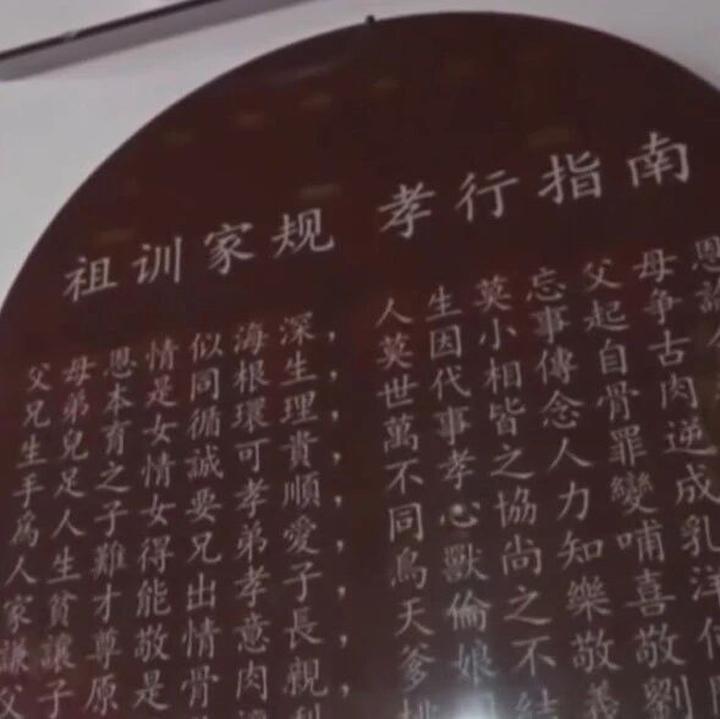 祖训家规 孝行指南
父母恩情似海深， 人生莫忘父母恩
兄弟本是同根生， 莫因小事起争論
生兒育女循環理， 世代相傳自古
手足之情誠可貴， 萬事皆念骨肉
爲人子女要孝順， 不孝之人罪逆
人生難得兄弟愛， 同心協力變成
家貧才能出孝子， 鳥獸尚知哺乳
謙讓尊敬情意長， 天倫之樂喜洋
父子原是骨肉親， 爹娘不敬敬